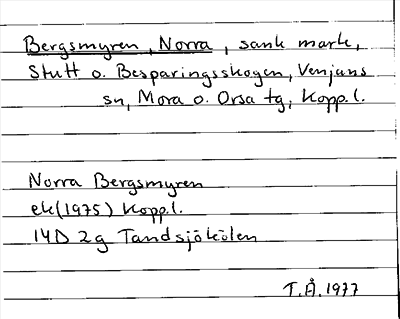 Bergsmyren, Norra, sank mark,
Stutt o. Besparingsskogen, Venjans
sn, Mora o. Orsa tg, Kopp. l.
Norra Bergsmyren
ek(1975) Kopp. l.
14D 2g Tandsjökölen
T.Å. 1977